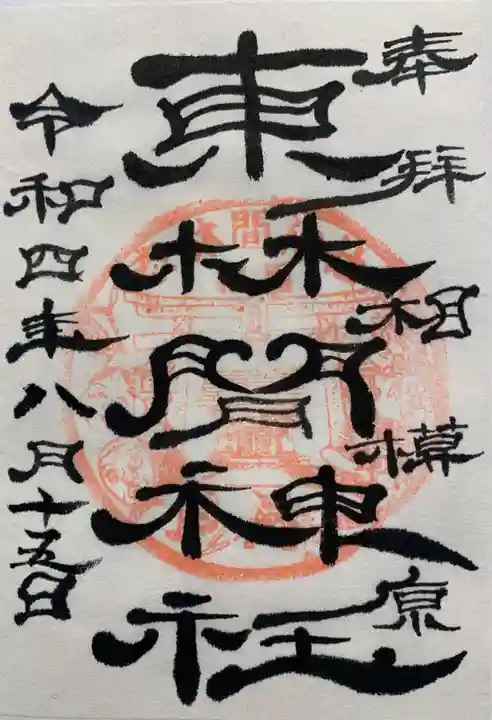 奉拝 相模原
東林間神社
令和四年八月十五日